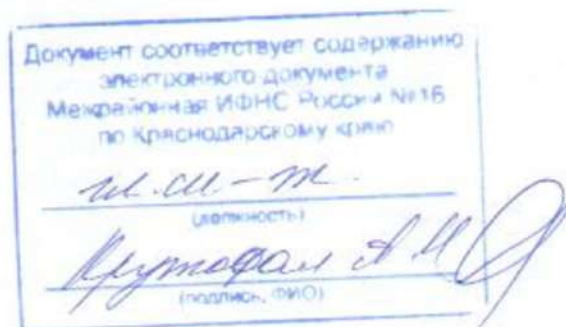 Документ соответствует содержанию
электронного документа
Межрайонная ИФНС России №16
по Краснодарскому краю
(должность)
А И
(подпись, ФИО)